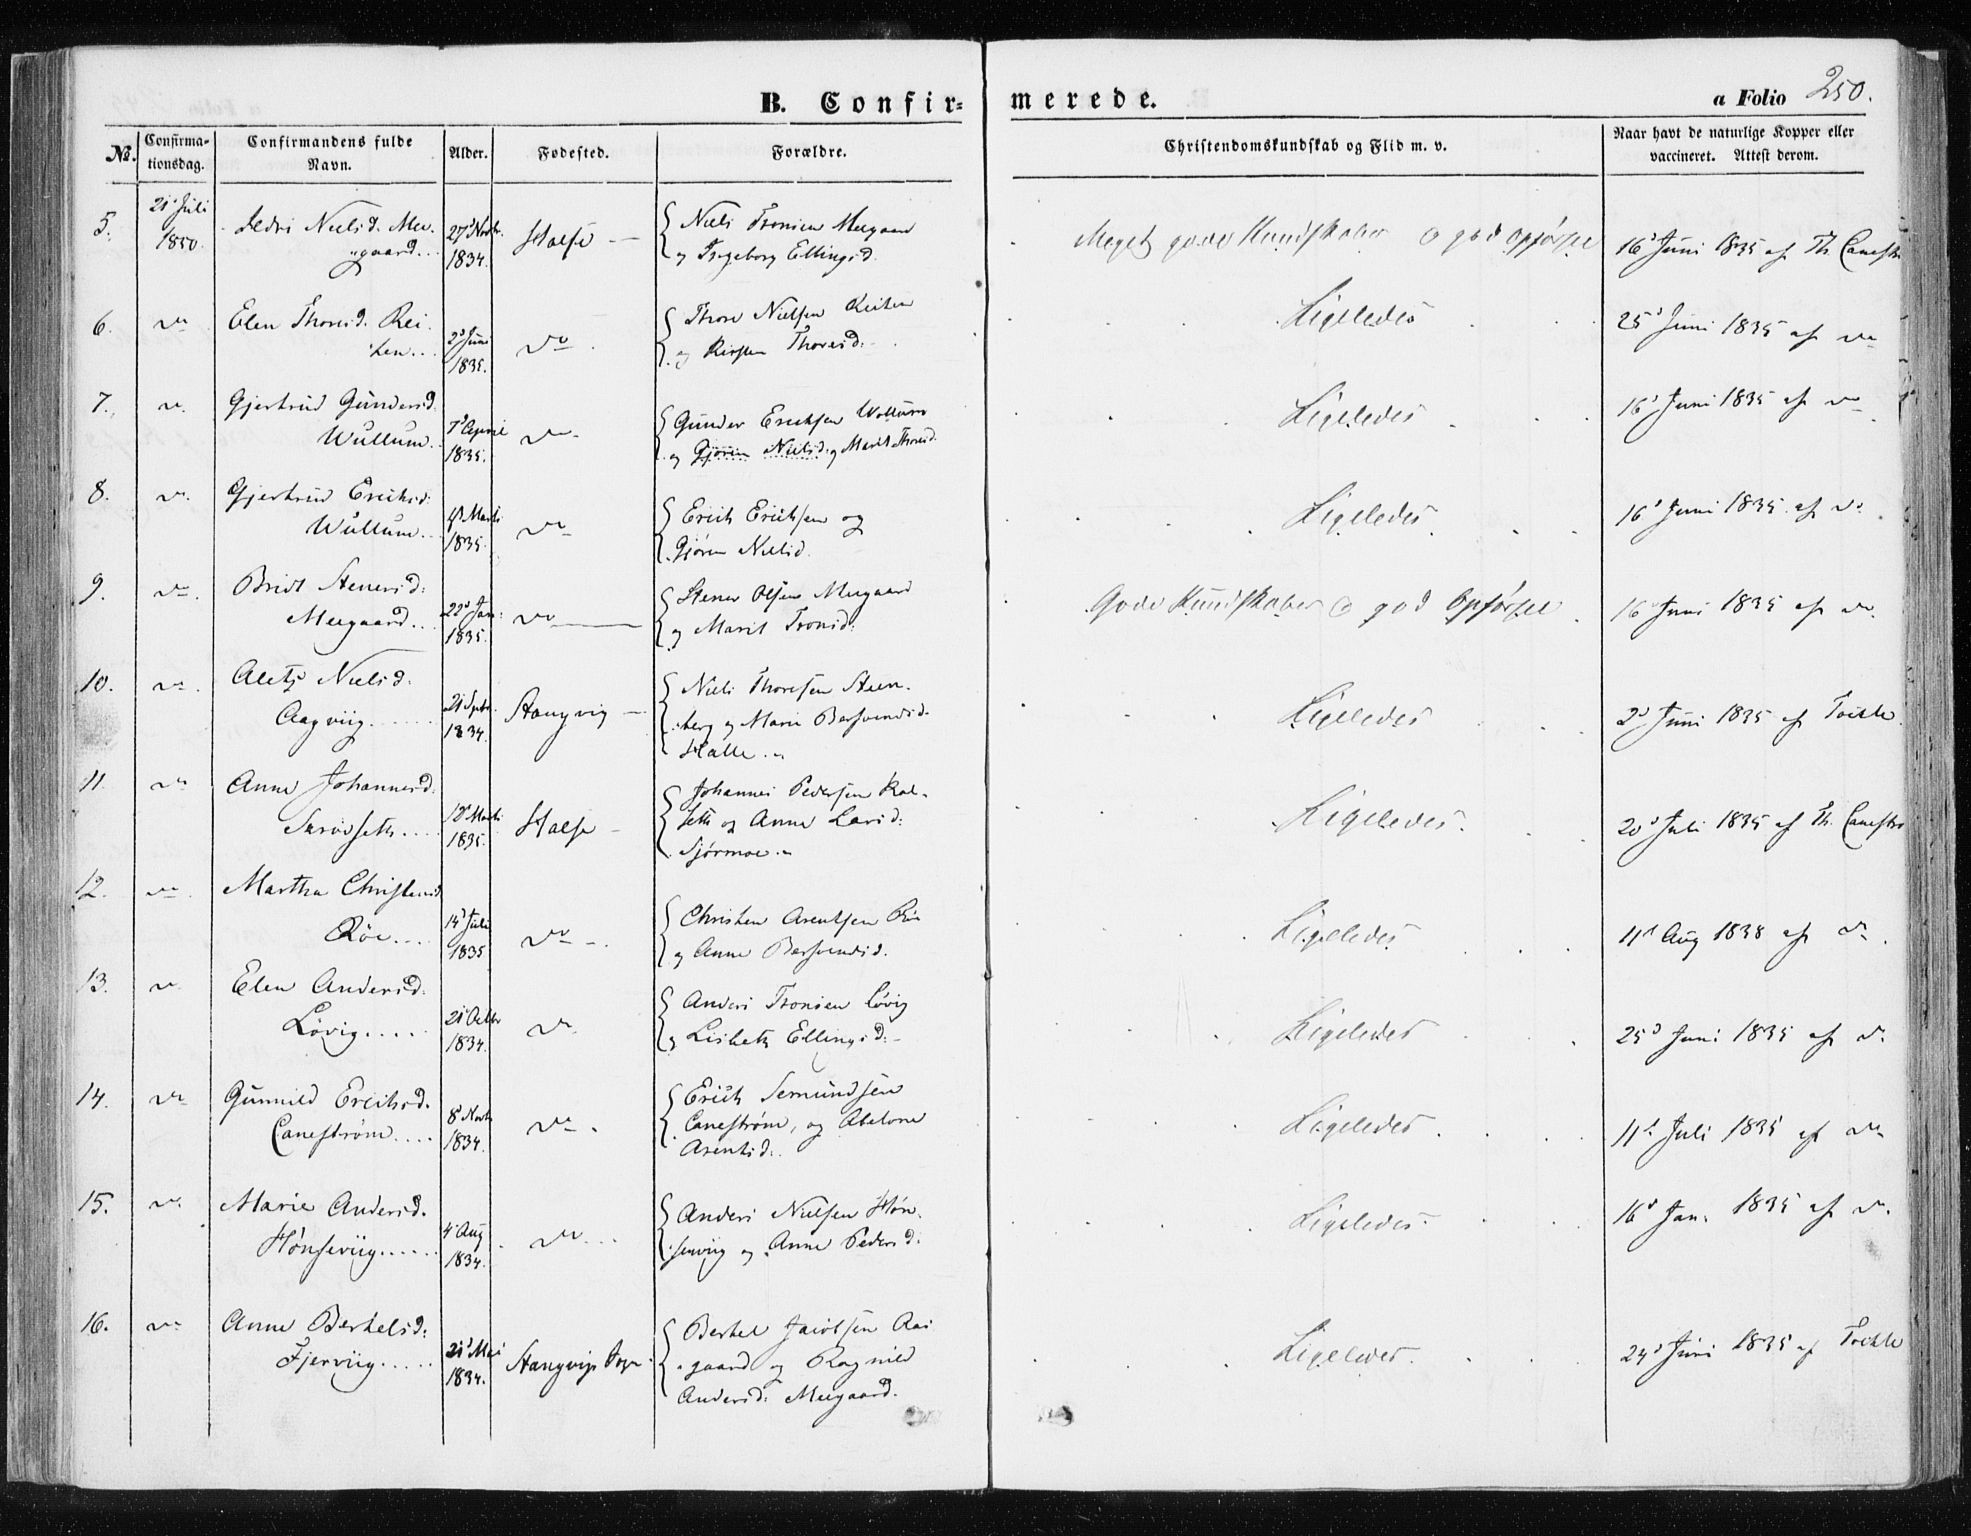 B. Confir-
merede.
a Folio 250.
No. Confirma-tionsdag. Confirmandens fulde Navn. Alder. Fødested. Forældre. Christendomskundskab og Flid m. v. Naar havt de naturlige Kopper eller vaccineret. Attest derom.
5. 21d Juli 1850. Nielsd. Mee-gaard.. 27d Novbr. 1834. Halse { Niels Tronsen Meegaard
og Ingeborg Ellingsd. Meget gode Kundskaber og god Opførsel 16d Juni 1835 af Th. Canestr
6. do Elen Thoresd. Rei-
ten... 2d Juni 1835. do { Thore Nielsen Reiten
og Kirsten Thoresd. Ligeledes 25d Juni 1835 af do
7. do. Gjertrud Gundersd.
Wullum.. 7d April 1835. do { Gunder Erichsen Wullum
og Gjøren Nielsd. og Marit Thoresd. Ligeledes 16d Juni 1835 af do
8. do. Gjertrud Erichsd.
Wullum.. Marti 1835. do { Erich Erichsen og
Gjøren Nielsd. Ligeledes 16d Juni 1835 af do
9. do. Bridt Stenersd:
Meegaard... 22d Jan: 1835. do { Stener Olsen Meegaard
og Marit Tronsd: Gode Kundskaber og god Opførsel 16d Juni 1835 af do.
10. do. Nielsd.
Aagviig...... 21d Sptr. 1834. Stangvig { Niels Thoresen Steen-
berg og Marie Bersvendsd.
Halle.. Ligeledes 2d Juni 1835 af Toikle
11. do Anne Johannesd.
Marti 1835. Halse { Johannes Pedersen
og Anne Larsd:
Sjørmoe.. Ligeledes. 20d Juli 1835 af Th. Canestro
12. do. Martha Christensd
Røe.... 14d Juli 1835 do { Christen Arentsen Røe
og Anne Bersvendsd. Ligeledes 11d Aug 1838 af do.
13. do Elen Andersd.
Løvig..... 21d Octbr 1834. do { Anders Tronsen Løvig
og Lisbeth Ellingsd: Ligeledes 25d Juni 1835 af do.
14. do Gunnild Erichsd.
Canestrøm.... 8d Novbr 1834. do. { Erich Semundsen
Canestrøm, og Abelone
Arentsd: Ligeledes 11d Juli 1835 af do
15. do. Marie Andersd.
Hønseviig...... 4d Aug 1834. do { Anders Nielsen Høn-
seviig og Anne Pedersd. Ligeledes 16d Jan: 1835 af do.
16. do Anne Berhelsd:
Fjerviig..... 21d Mai 1834. Stangvigs Sogn { Berhel Jacobsen Aas-
gaard og Ragnild
Andersd. Meegaard. Ligeledes. 24d Juni 1835 af Toikle